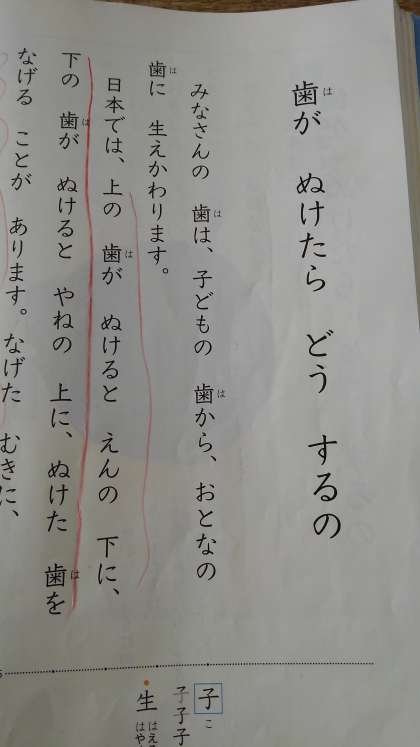 歯が ぬけたら どう するの
みなさんの 歯は、子どもの 歯から、おとなの
歯に 生えかわります。
日本では、上の 歯が ぬけると えんの 下に、
下の 歯が ぬけると やねの 上に、ぬけた 歯を
なげる ことが あります。なげた むきに、
子 こ
子子
生 はえ